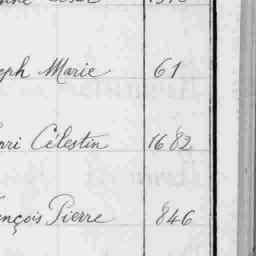 eph Marie 61
ri Célestin 1682
nçois Pierre 846